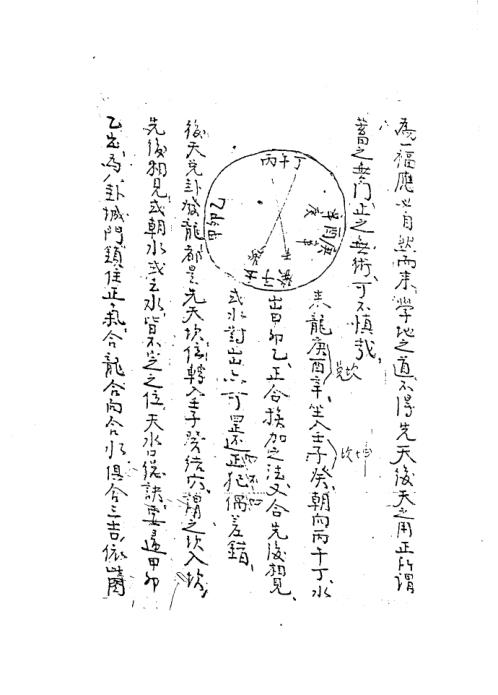 為一福應必自然而来、學地之道不得先天後天之用正所謂
蓄之無门、正之無術、可不慎哉、
来龍庚酉辛、坐入壬子癸、朝向丙午丁、水
兌坎
坎坤
出甲卯乙、正合挨加之法、又合先後相見、
或水對出亦可罡还正犯偶差錯、
後天兌卦發龍都是先天坎位、轉入壬子癸结穴、謂之坎入坎、
先後相見或朝水或之水、皆不空之位、天水口総訣要歸甲卯
乙出、為八卦城門鎖住正氣、合龍合向合水、俱合三吉、依此圖
丙午丁
乙卯甲
庚酉辛
壬子癸